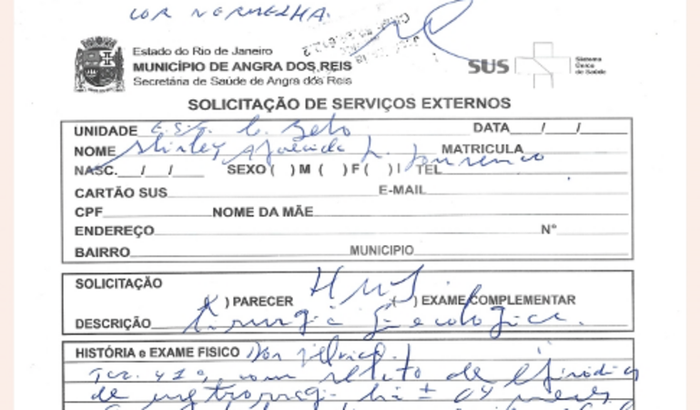 COR VERMELHA.
Estado do Rio de Janeiro
MUNICÍPIO DE ANGRA DOS REIS
Secretaria de Saúde de Angra dos Reis
SUS Sistema Único de Saúde
SOLICITAÇÃO DE SERVIÇOS EXTERNOS
UNIDADE E.S.F. DATA / /
NOME Shirley Aparecida MATRICULA
NASC. / / SEXO ( ) M ( ) F ( ) I TEL
CARTÃO SUS E-MAIL
CPF NOME DA MÃE
ENDEREÇO Nº
BAIRRO MUNICIPIO
SOLICITAÇÃO
( ) PARECER ( ) EXAME COMPLEMENTAR
DESCRIÇÃO Cirurgia Ginecológica.
HISTÓRIA e EXAME FISICO Dor pélvica.
com relato de episódios
de metrorragia há ± 04 meses